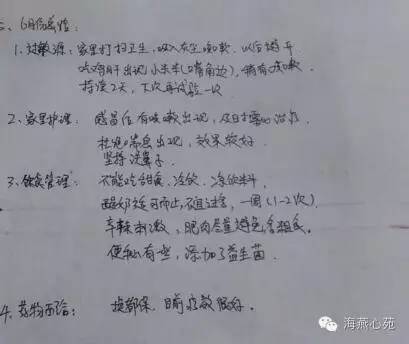 5、6月份总结:
1.过敏源:家里打扫卫生,吸入灰尘咳嗽,以后避开
吃鸡肝出现小米米(嘴角边),稍有咳嗽,
持续2天,下次再试验一次
2、家里护理:感冒后有咳嗽出现,及时雾化治疗,
杜绝喘息出现,效果较好。
坚持洗鼻子.
3、饮食管理:不能吃甜食、冷饮、凉饮料
酸奶适可而止,不宜过多,一周(1-2次)
辛辣刺激,肥肉尽量避免,多粗食。
便秘有些,添加了益生菌.
4.药物面给:按都保,目前疗效很好。
海燕心苑